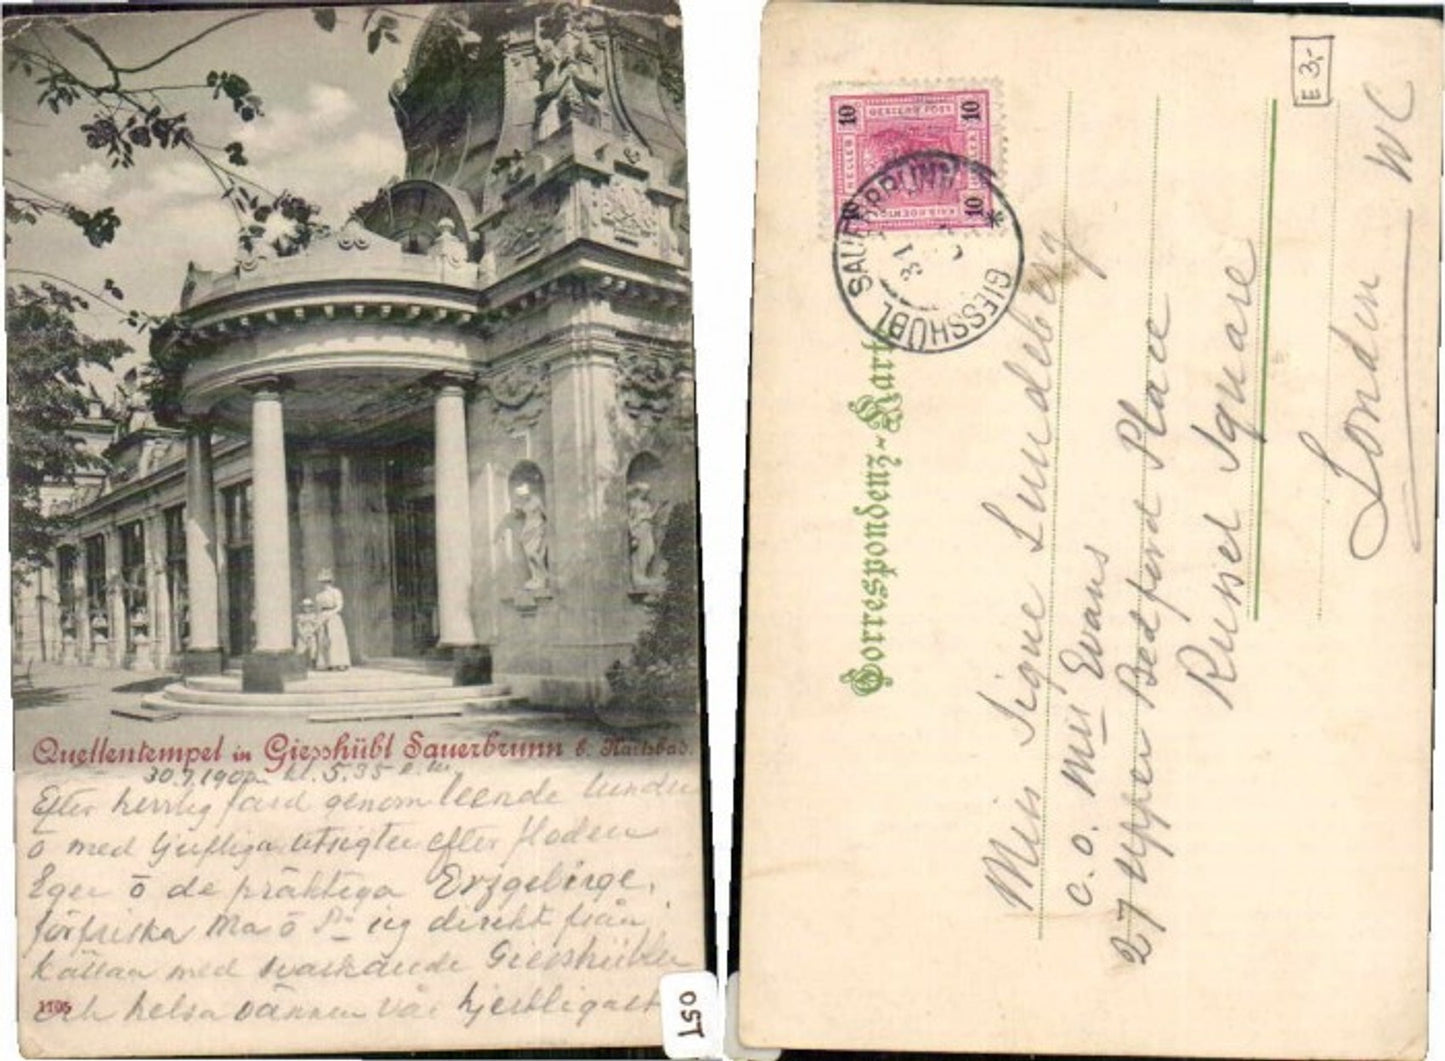 Quellentempel in Giesshübl Sauerbrunn b. Karlsbad.
30.7.1900 kl. 5.35 e.m.
Efter herrlig färd genom leende
ō med ljufliga utsigter efter floden
Eger ō de präktiga Erzgebirge,
förfriska Ma ō Pa sig direkt från
källan med Giesshübler
och helsa vännen vår hjertligast
1105
OST
E 3,-
10
10
10
HELLER
GIESSHÜBL SAUERBRUNN
31
Correspondenz-Karte
Miss Signe Lundeberg
c.o. Miss Evans
27 Upper Bedford Place
Russel Square
London WC